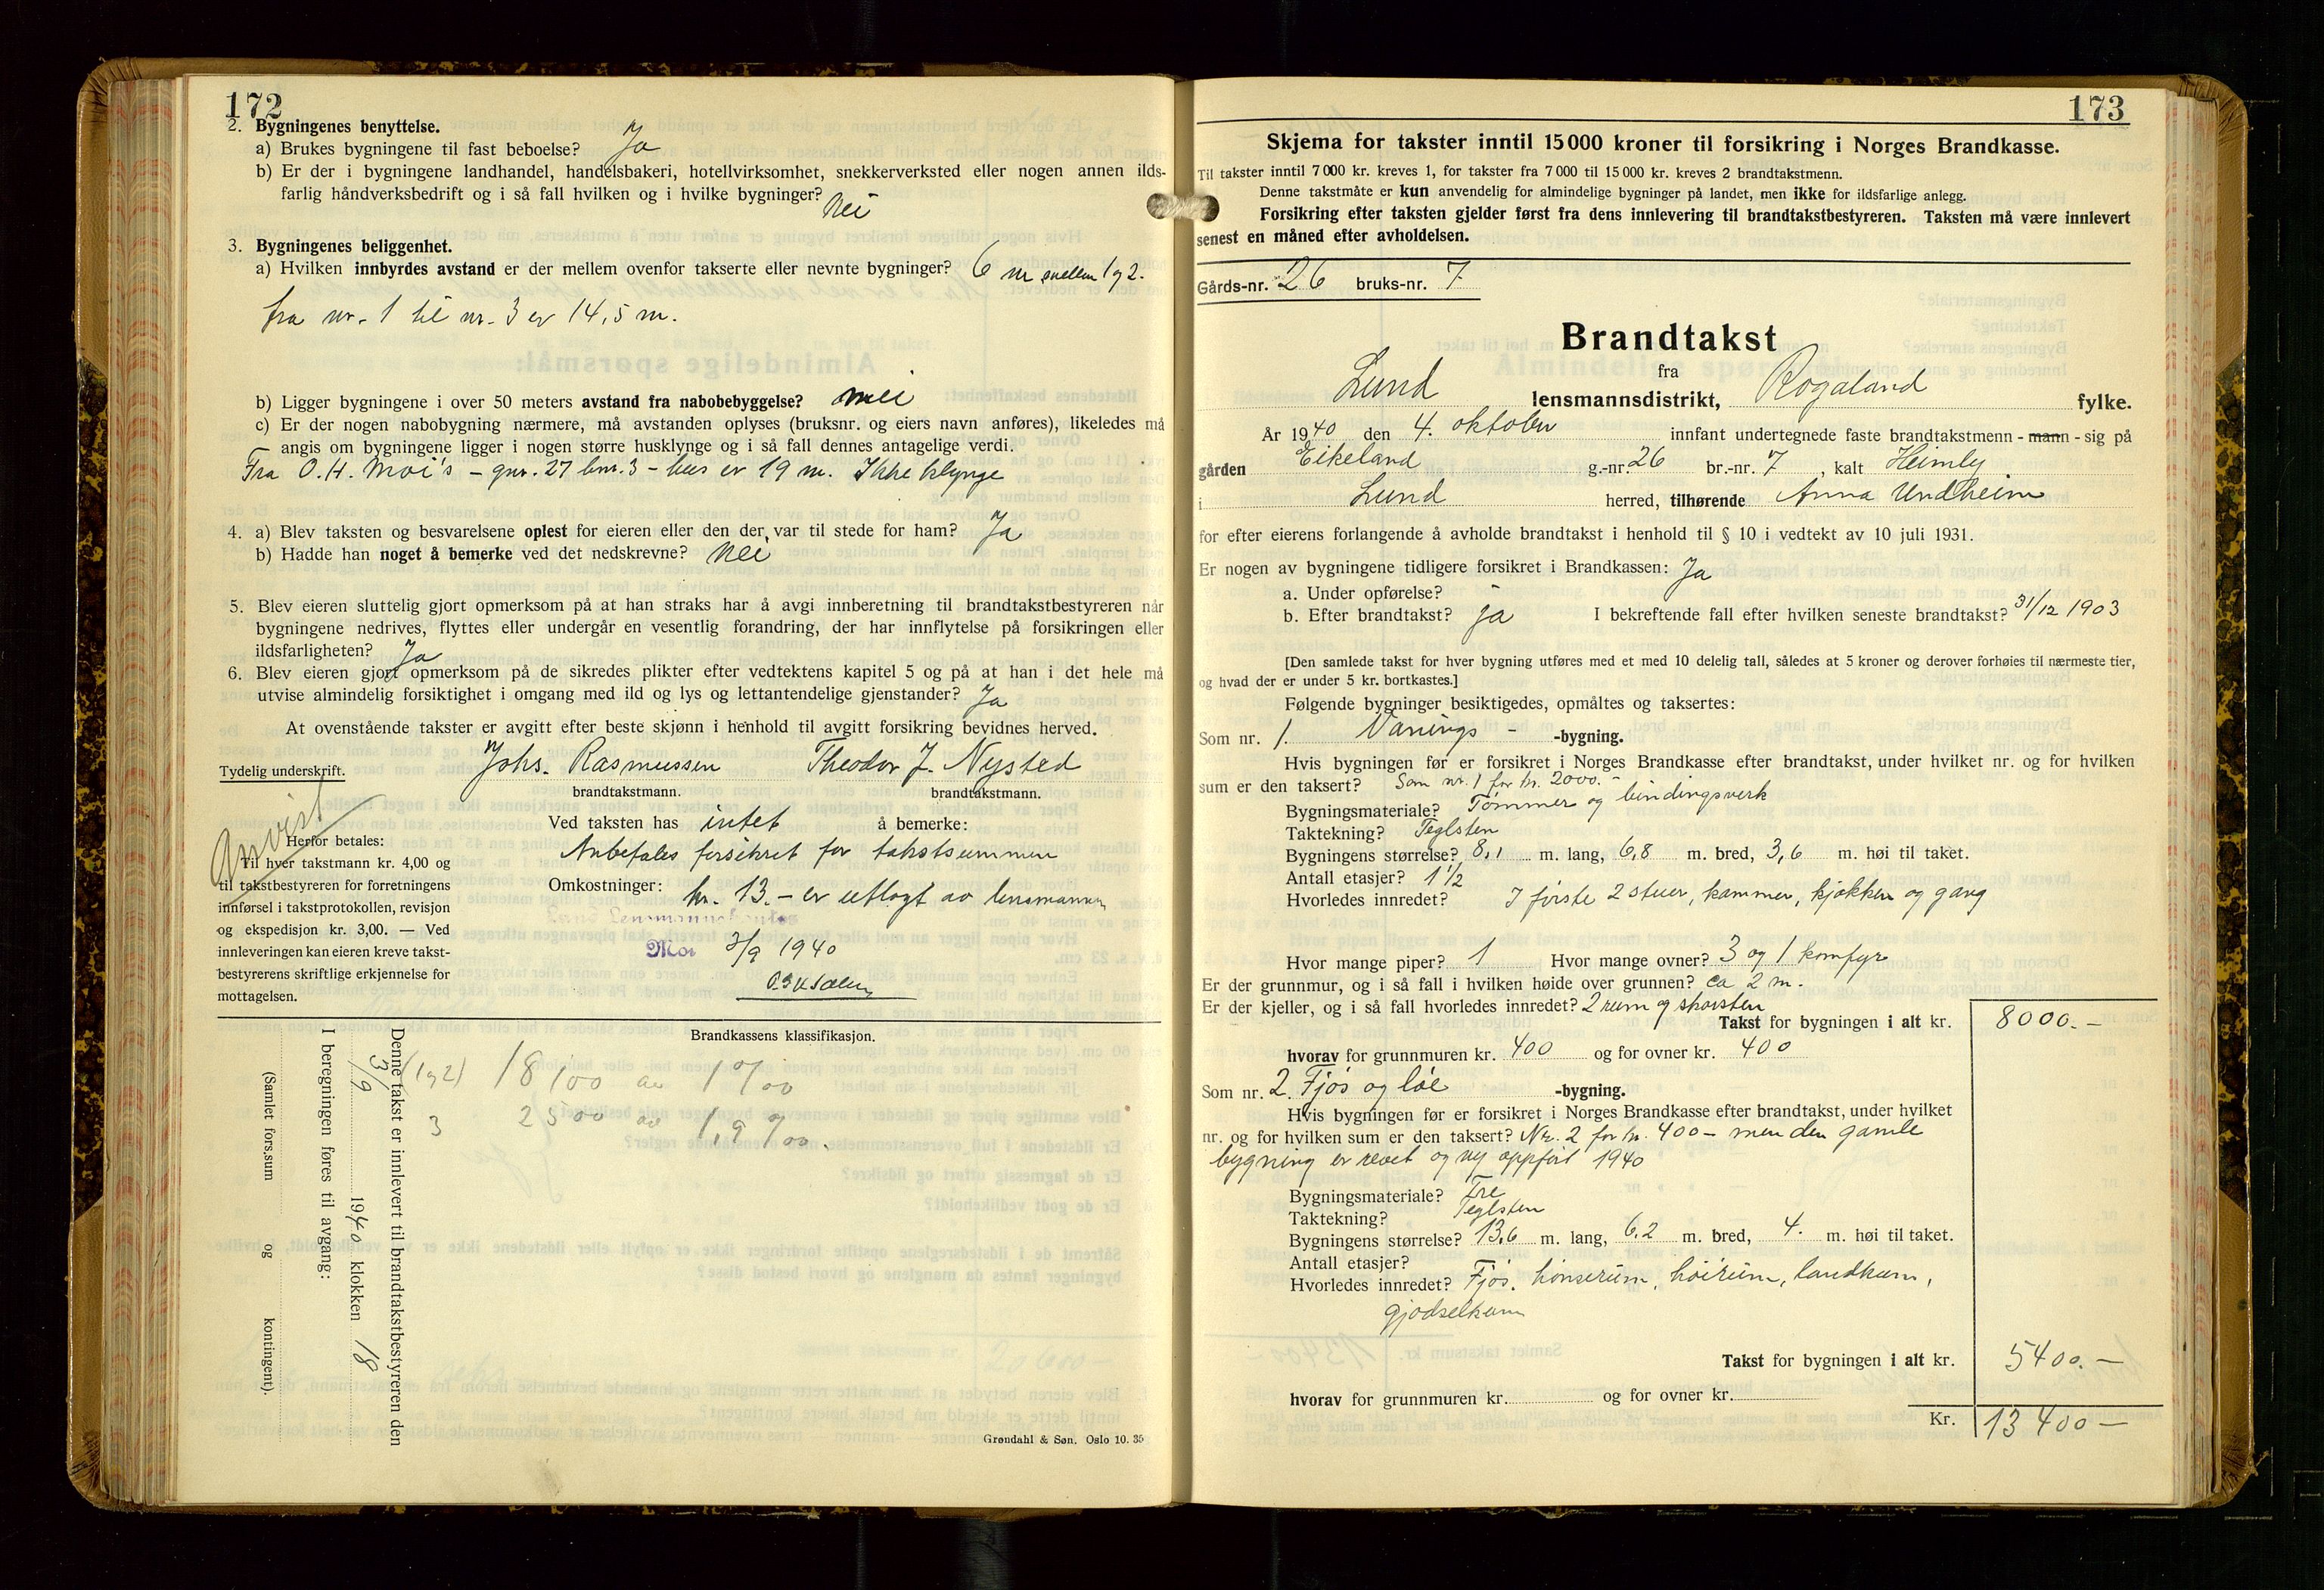 172
2. Bygningenes benyttelse.
a) Brukes bygningene til fast beboelse? Ja
b) Er der i bygningene landhandel, handelsbakeri, hotellvirksomhet, snekkerverksted eller nogen annen ilds-
farlig håndverksbedrift og i så fall hvilken og i hvilke bygninger? Nei
3. Bygningenes beliggenhet.
a) Hvilken innbyrdes avstand er der mellem ovenfor takserte eller nevnte bygninger? 6 m mellem 1 og 2.
fra nr. 1 til nr. 3 er 14,5 m.
b) Ligger bygningene i over 50 meters avstand fra nabobebyggelse? nei
c) Er der nogen nabobygning nærmere, må avstanden oplyses (bruksnr. og eiers navn anføres), likeledes må
angis om bygningene ligger i nogen større husklynge og i så fall dennes antagelige verdi.
Fra O. H. Moi's – gnr. 27 bnr. 3 – hus er 19 m. Ikke klynge
4. a) Blev taksten og besvarelsene oplest for eieren eller den der var til stede for ham? Ja
b) Hadde han noget å bemerke ved det nedskrevne? Nei
5. Blev eieren sluttelig gjort opmerksom på at han straks har å avgi innberetning til brandtakstbestyreren når
bygningene nedrives, flyttes eller undergår en vesentlig forandring, der har innflytelse på forsikringen eller
ildsfarligheten? Ja
6. Blev eieren gjort opmerksom på de sikredes plikter efter vedtektens kapitel 5 og på at han i det hele må
utvise almindelig forsiktighet i omgang med ild og lys og lettantendelige gjenstander? Ja
At ovenstående takster er avgitt efter beste skjønn i henhold til avgitt forsikring bevidnes herved.
Tydelig underskrift. Johs. Rasmussen Theodor J. Nysted
brandtakstmann. brandtakstmann.
Anvist
Ved taksten has intet å bemerke:
Anbefales forsikret for takstsummen
Omkostninger: kr. 13.– er utlagt av lensmannen
Lund Lensmannskontor
Moi 3/9 1940
Herfor betales:
Til hver takstmann kr. 4,00 og
til takstbestyreren for forretningens
innførsel i takstprotokollen, revisjon
og ekspedisjon kr. 3,00. — Ved
innleveringen kan eieren kreve takst-
bestyrerens skriftlige erkjennelse for
mottagelsen.
Brandkassens klassifikasjon.
(1 og 2) 18100 av 1 ‰
3 2500 av 1,9 ‰.
Denne takst er innlevert til brandtakstbestyreren den
3/9 1940 klokken 18
I beregningen føres til avgang:
(Samlet fors.sum og kontingent).
Grøndahl & Søn. Oslo 10. 35
173
Skjema for takster inntil 15 000 kroner til forsikring i Norges Brandkasse.
Til takster inntil 7 000 kr. kreves 1, for takster fra 7 000 til 15 000 kr. kreves 2 brandtakstmenn.
Denne takstmåte er kun anvendelig for almindelige bygninger på landet, men ikke for ildsfarlige anlegg.
Forsikring efter taksten gjelder først fra dens innlevering til brandtakstbestyreren. Taksten må være innlevert
senest en måned efter avholdelsen.
Gårds-nr. 26 bruks-nr. 7
Brandtakst
fra
Lund lensmannsdistrikt, Rogaland fylke.
År 1940 den 4. oktober innfant undertegnede faste brandtakstmenn - mann - sig på
gården Eikeland g.-nr. 26 br.-nr. 7, kalt Heimly
i Lund herred, tilhørende Anna Undheim
for efter eierens forlangende å avholde brandtakst i henhold til § 10 i vedtekt av 10 juli 1931.
Er nogen av bygningene tidligere forsikret i Brandkassen: Ja
a. Under opførelse?
b. Efter brandtakst? ja I bekreftende fall efter hvilken seneste brandtakst? 31/12 1903
[Den samlede takst for hver bygning utføres med et med 10 delelig tall, således at 5 kroner og derover forhøies til nærmeste tier,
og hvad der er under 5 kr. bortkastes.]
Følgende bygninger besiktigedes, opmåltes og taksertes:
Som nr. 1. Vånings - -bygning.
Hvis bygningen før er forsikret i Norges Brandkasse efter brandtakst, under hvilket nr. og for hvilken
sum er den taksert? Som nr. 1 for kr. 2000.-
Bygningsmateriale? Tømmer og bindingsverk
Taktekning? Teglsten
Bygningens størrelse? 8,1 m. lang, 6,8 m. bred, 3,6 m. høi til taket.
Antall etasjer? 1 1/2
Hvorledes innredet? I første 2 stuer, kammer, kjøkken og gang
Hvor mange piper? 1 Hvor mange ovner? 3 og 1 komfyr
Er der grunnmur, og i så fall i hvilken høide over grunnen? ca 2 m.
Er der kjeller, og i så fall hvorledes innredet? 2 rum og skorsten
Takst for bygningen i alt kr. 8000.-
hvorav for grunnmuren kr. 400 og for ovner kr. 400
Som nr. 2. Fjøs og løe -bygning.
Hvis bygningen før er forsikret i Norges Brandkasse efter brandtakst, under hvilket
nr. og for hvilken sum er den taksert? Nr. 2 for kr. 400 – men den gamle
bygning er revet og ny oppført 1940
Bygningsmateriale? Tre
Taktekning? Teglsten
Bygningens størrelse? 13,6 m. lang, 6,2 m. bred, 4. m. høi til taket.
Antall etasjer?
Hvorledes innredet? Fjøs, hønserum, høirum, landkum,
gjødselkum
Takst for bygningen i alt kr. 5400.-
hvorav for grunnmuren kr. og for ovner kr.
Kr. 13 400 –